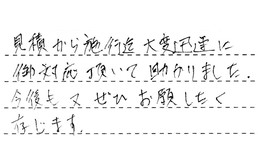 見積から施行迄大変迅速に
御対応頂いて助かりました.
今後も又ぜひお願したく
存じます.